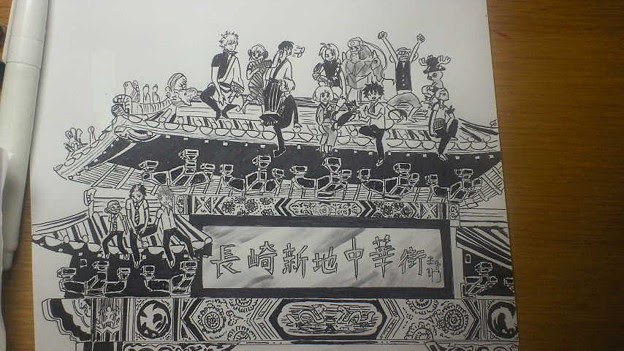 長崎新地中華街